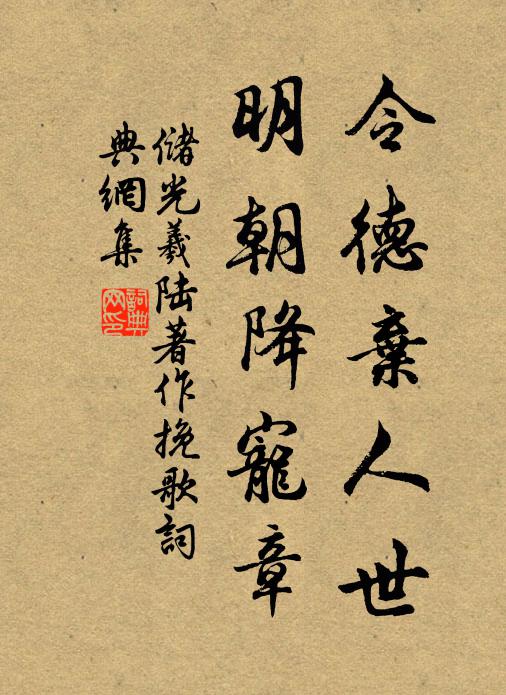 令德棄人世
明朝降寵章
儲光羲陸著作挽歌詞
典網集
詞典网印